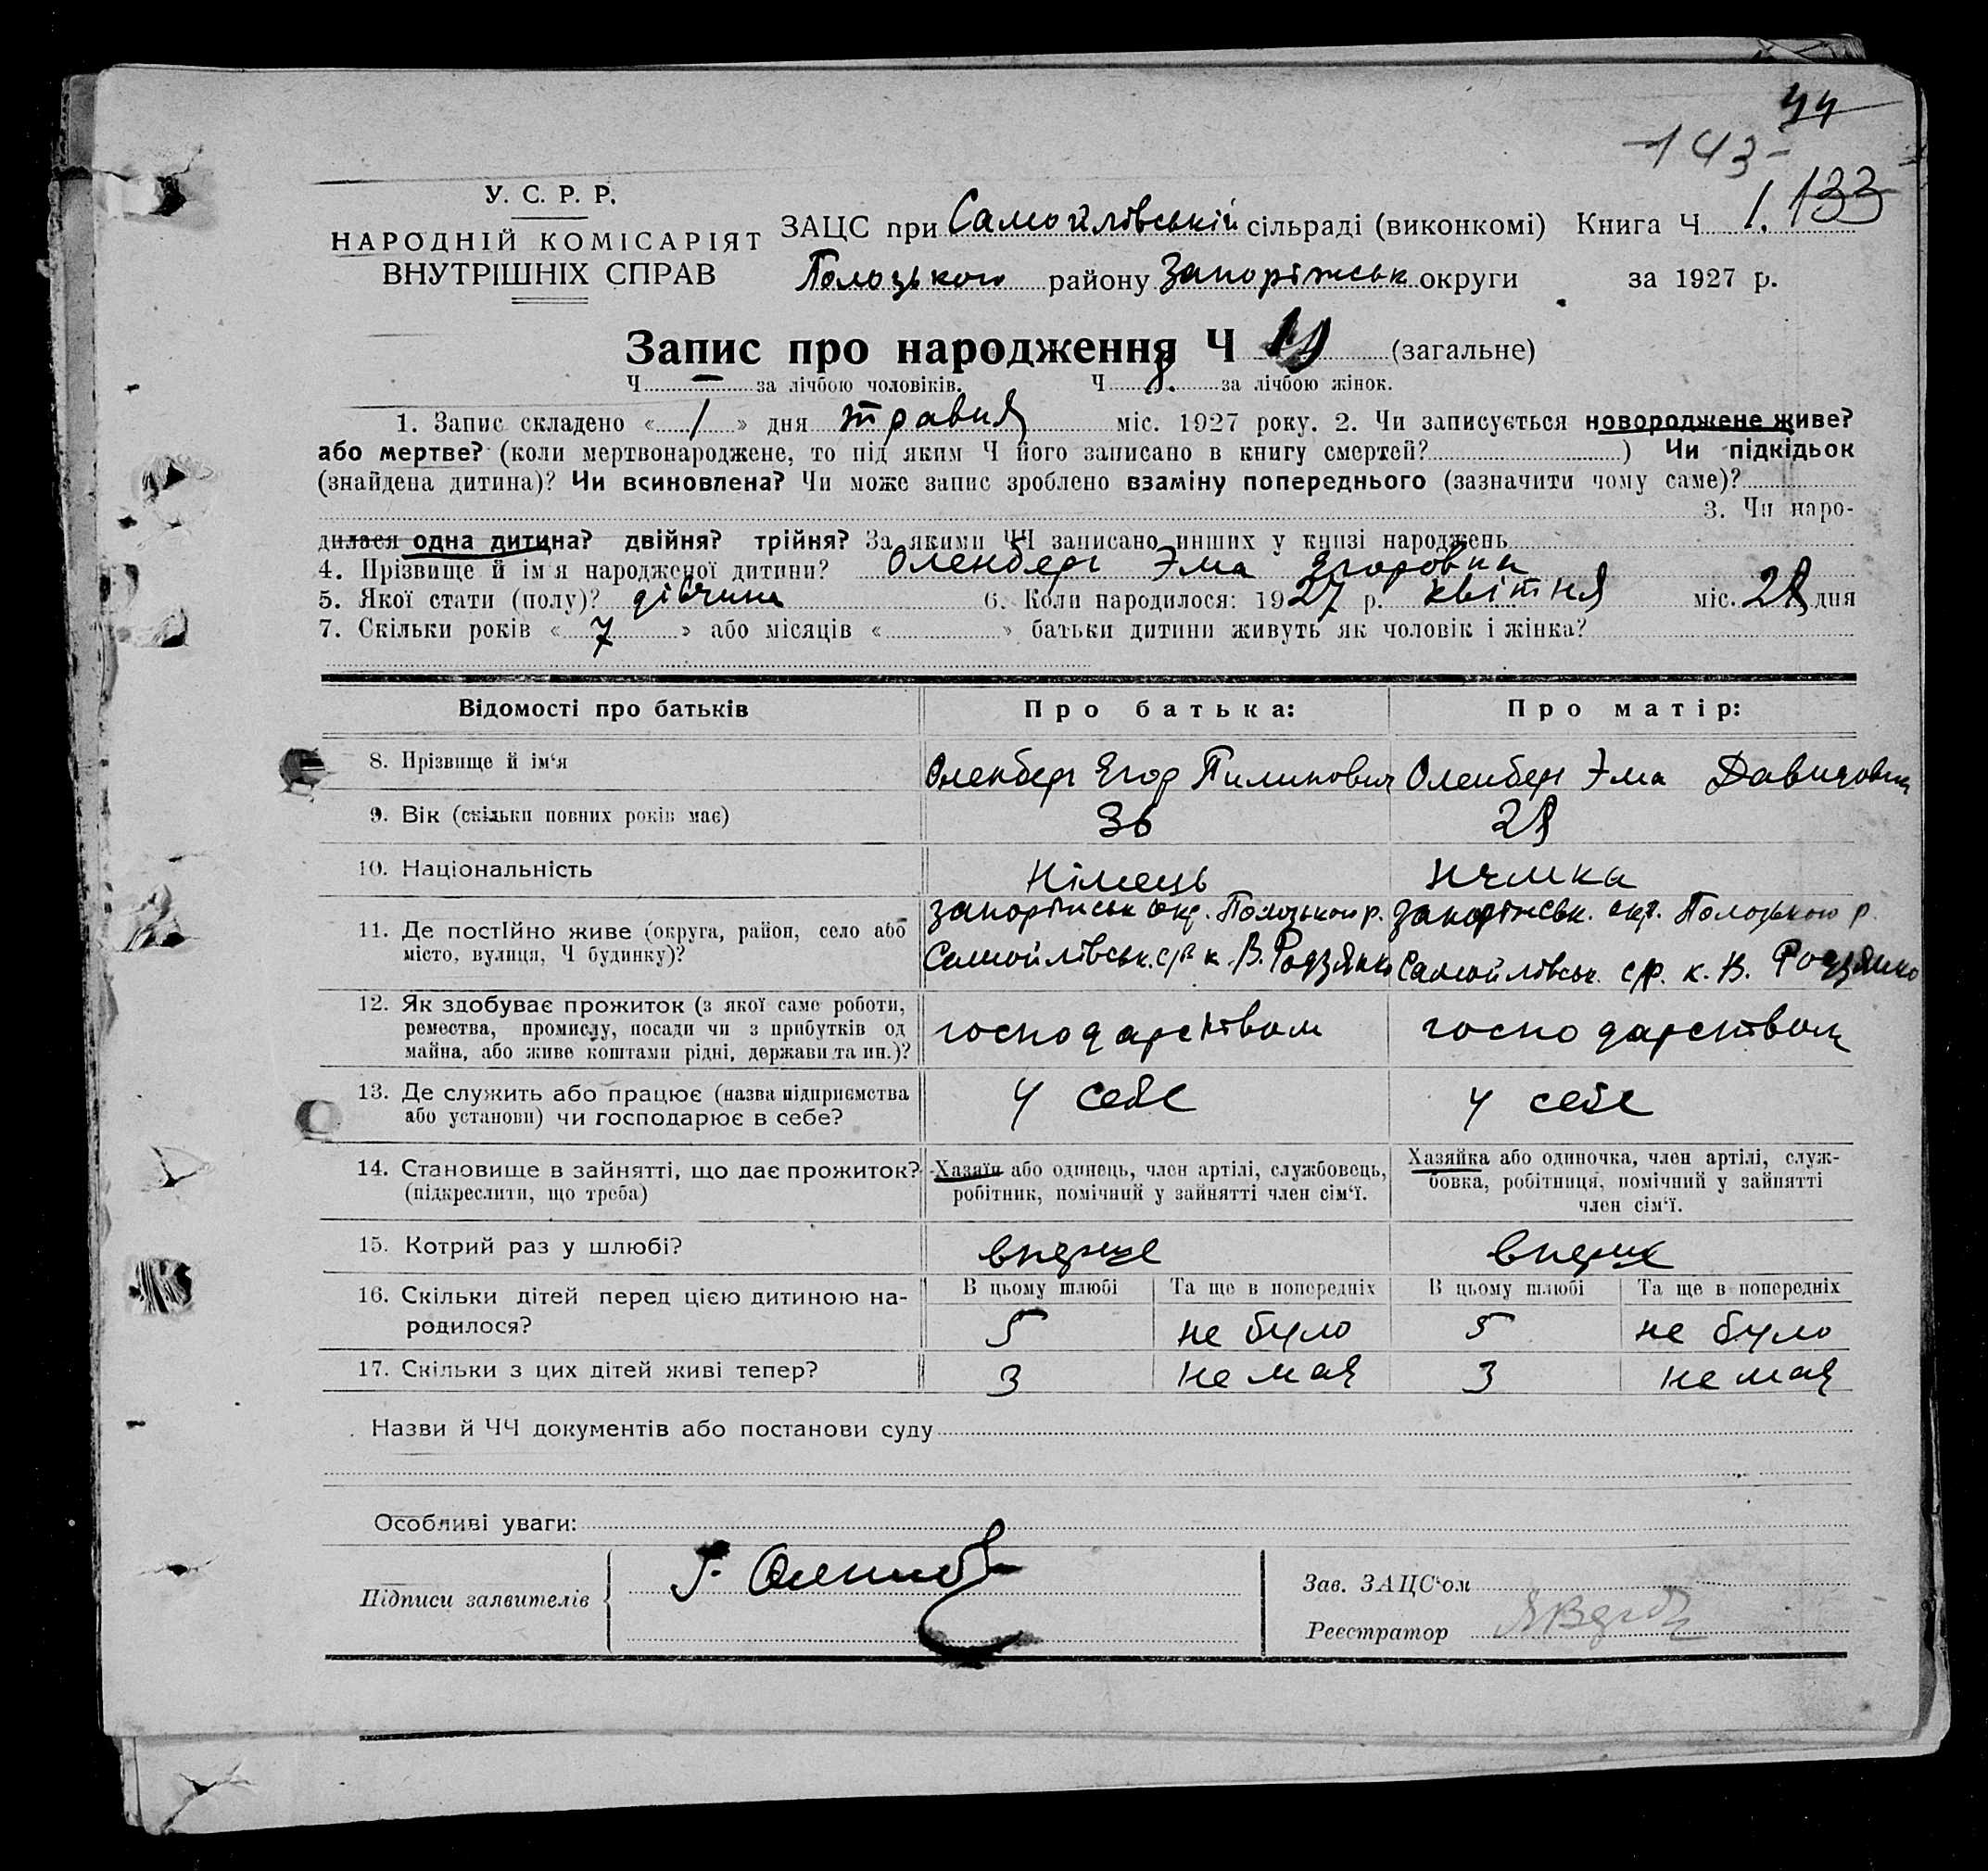 44
143-
У. С. Р. Р.
НАРОДНІЙ КОМІСАРІЯТ
ВНУТРІШНІХ СПРАВ
ЗАЦС при Самойлівській сільраді (виконкомі) Книга Ч 1. 133
Полоцького району Запоріжськ округи за 1927 р.
Запис про народження Ч (загальне)
Ч — за лічбою чоловіків. Ч 8. за лічбою жінок.
1. Запис складено « 1 » дня травня міс. 1927 року. 2. Чи записується новороджене живе?
або мертве? (коли мертвонароджене, то під яким Ч його записано в книгу смертей? ) Чи підкідьок
(знайдена дитина)? Чи всиновлена? Чи може запис зроблено взаміну попереднього (зазначити чому саме)?
3. Чи наро-
дилася одна дитина? двійня? трійня? За якими ЧЧ записано инших у книзі народжень
4. Прізвище й ім'я народженої дитини? Оленберг Эма Ягоровна
5. Якої стати (полу)? дівчина 6. Коли народилося: 1927 р. квітня міс. 28 дня
7. Скільки років « 7 » або місяців « » батьки дитини живуть як чоловік і жінка?
Відомості про батьків Про батька: Про матір:
8. Прізвище й ім'я Оленберг Ягор Пилипович Оленберг Эма Давидовна
9. Вік (скільки повних років має) 36 28
10. Національність Німець Нимка
11. Де постІйно живе (округа, район, село або Запоріжськ окр. Полоцького р. Запоріжськ. окр. Полоцького р.
місто, вулиця, Ч будинку)? Самойлівськ. с/р к. В. Родзянко Самойлівськ. с/р. к. В. Родзянко
12. Як здобуває прожиток (з якої саме роботи,
ремества, промислу, посади чи з прибутків од
майна, або живе коштами рідні, держави та ин.)? господарством господарством
13. Де служить або працює (назва підприємства
або установи) чи господарює в себе? У себе У себе
14. Становище в зайнятті, що дає прожиток?
(підкреслити, що треба)
Хазяїн або одинець, член артілі, службовець,
робітник, помічний у зайнятті член сім'ї.
Хазяйка або одиночка, член артілі, служ-
бовка, робітниця, помічний у зайнятті
член сім'ї.
15. Котрий раз у шлюбі? вперше вперше
16. Скільки дітей перед цією дитиною на-
родилося?
В цьому шлюбі Та ще в попередніх В цьому шлюбі Та ще в попередніх
5 не було 5 не було
17. Скільки з цих дітей живі тепер? 3 не мая 3 не мая
Назви й ЧЧ документів або постанови суду
Особливі уваги:
Підписи заявителів
Зав. ЗАЦС'ом
Реєстратор